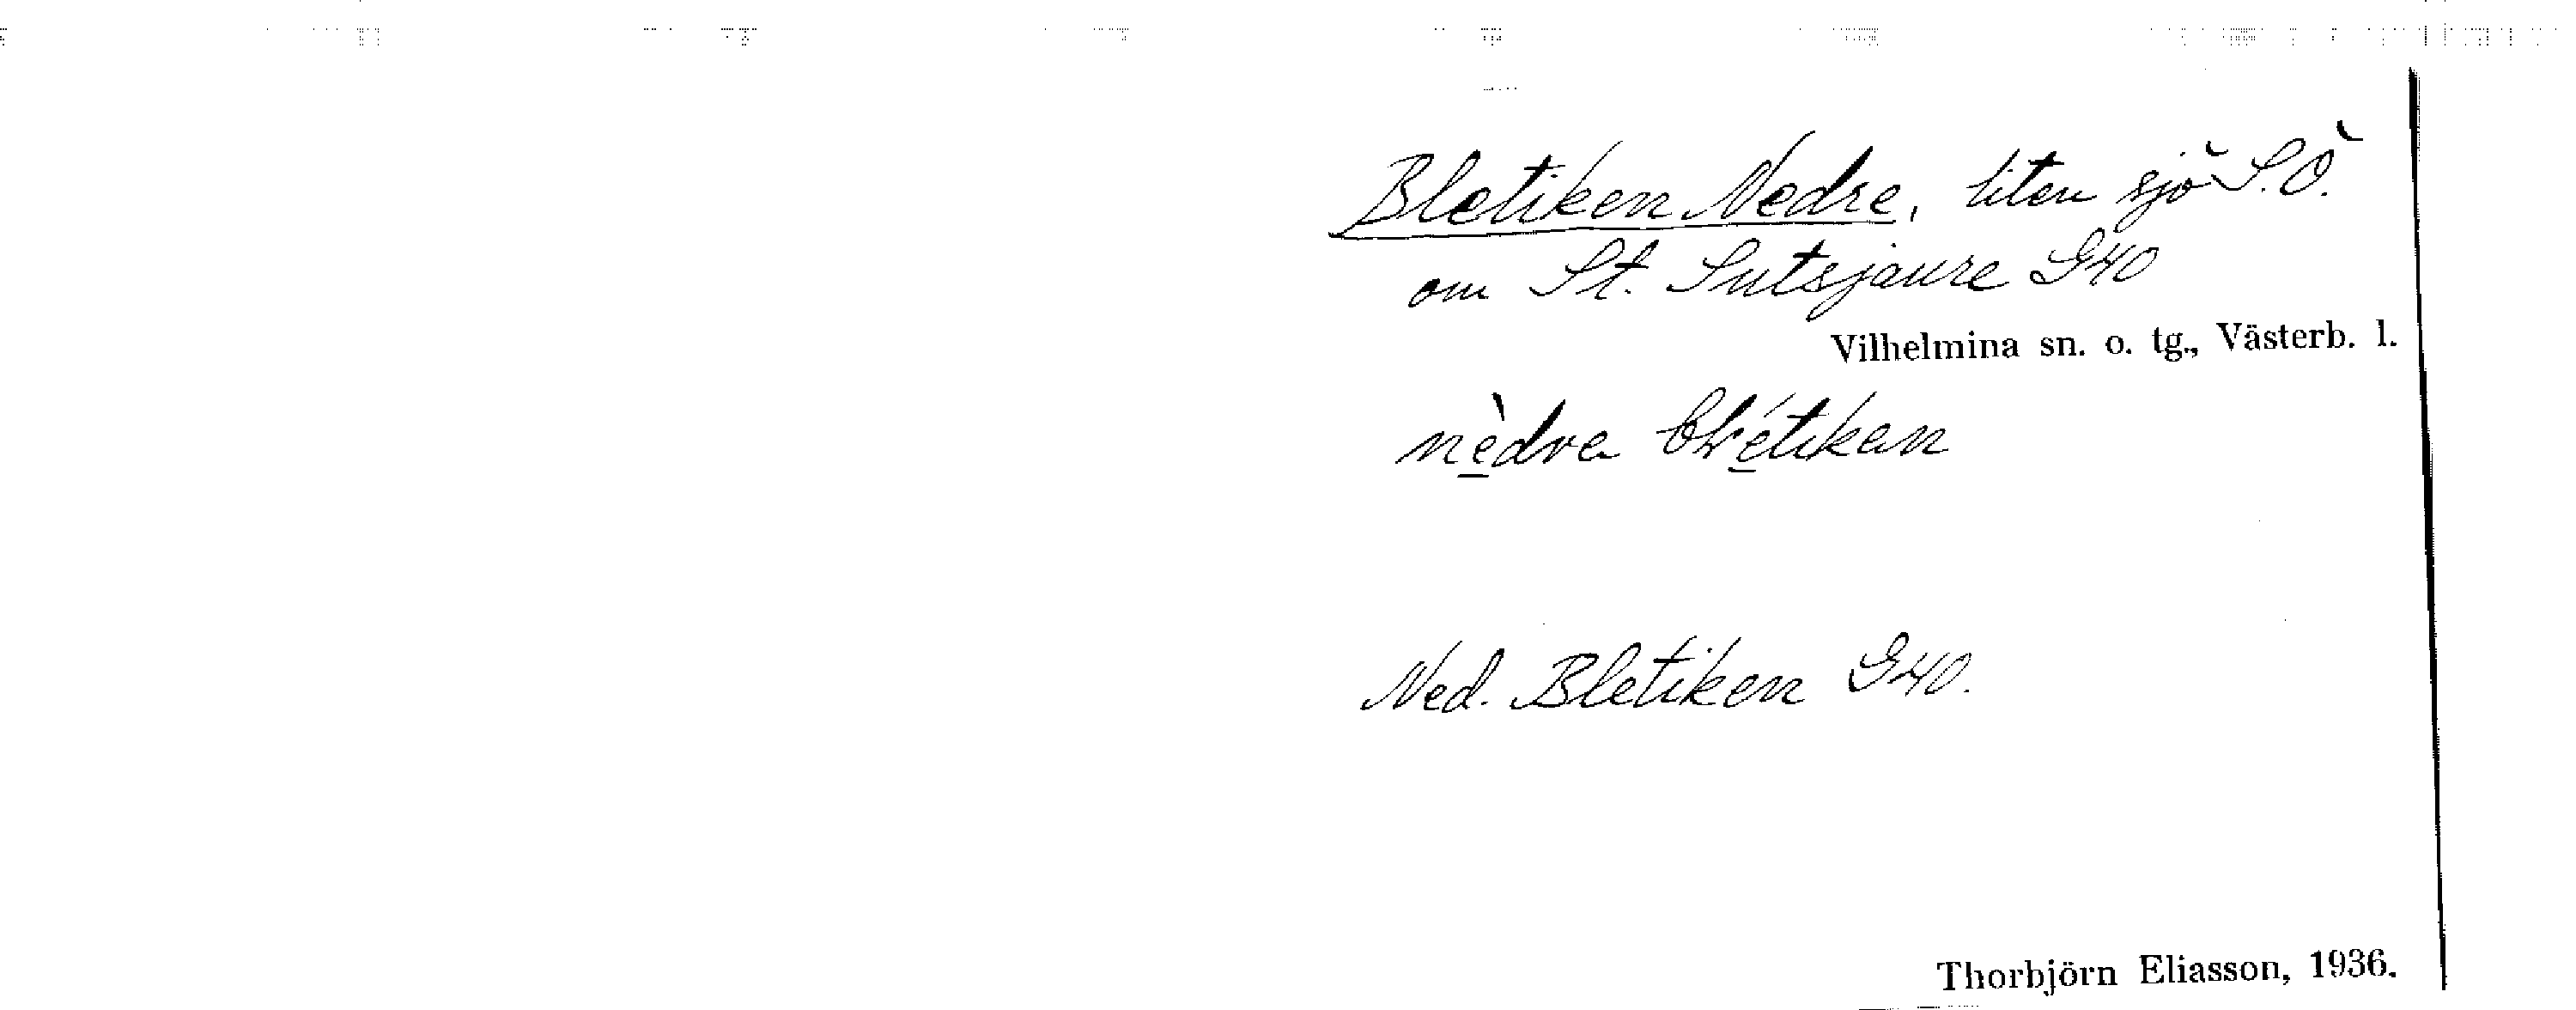 Bletiken Nedre, liten sjö S.Ö.
om St. Sutsjaure G40
Vilhelmina sn. o. tg., Västerb. l.
nèdra blétikan
Ned. Bletiken G40.
Thorbjörn Eliasson, 1936.